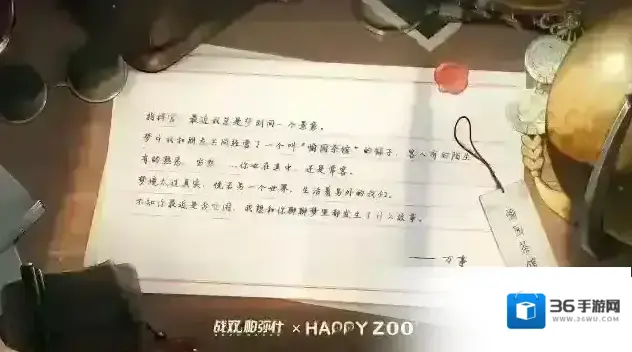 指挥官，最近我总是梦到同一个景象。
梦中我和朋友共同经营了一个叫“ 茶馆”的铺子，客人有的陌生
有的熟悉，当然……你也在其中，还是常客。
梦境太过真实，恍若另一个世界，生活着另外的我们。
不知你最近是否 闲，我想和你聊聊梦里都发生了什么故事。
——万事
茶馆
战双帕弥什 × HAPPY ZOO
36手游网
WWW.36WU.COM